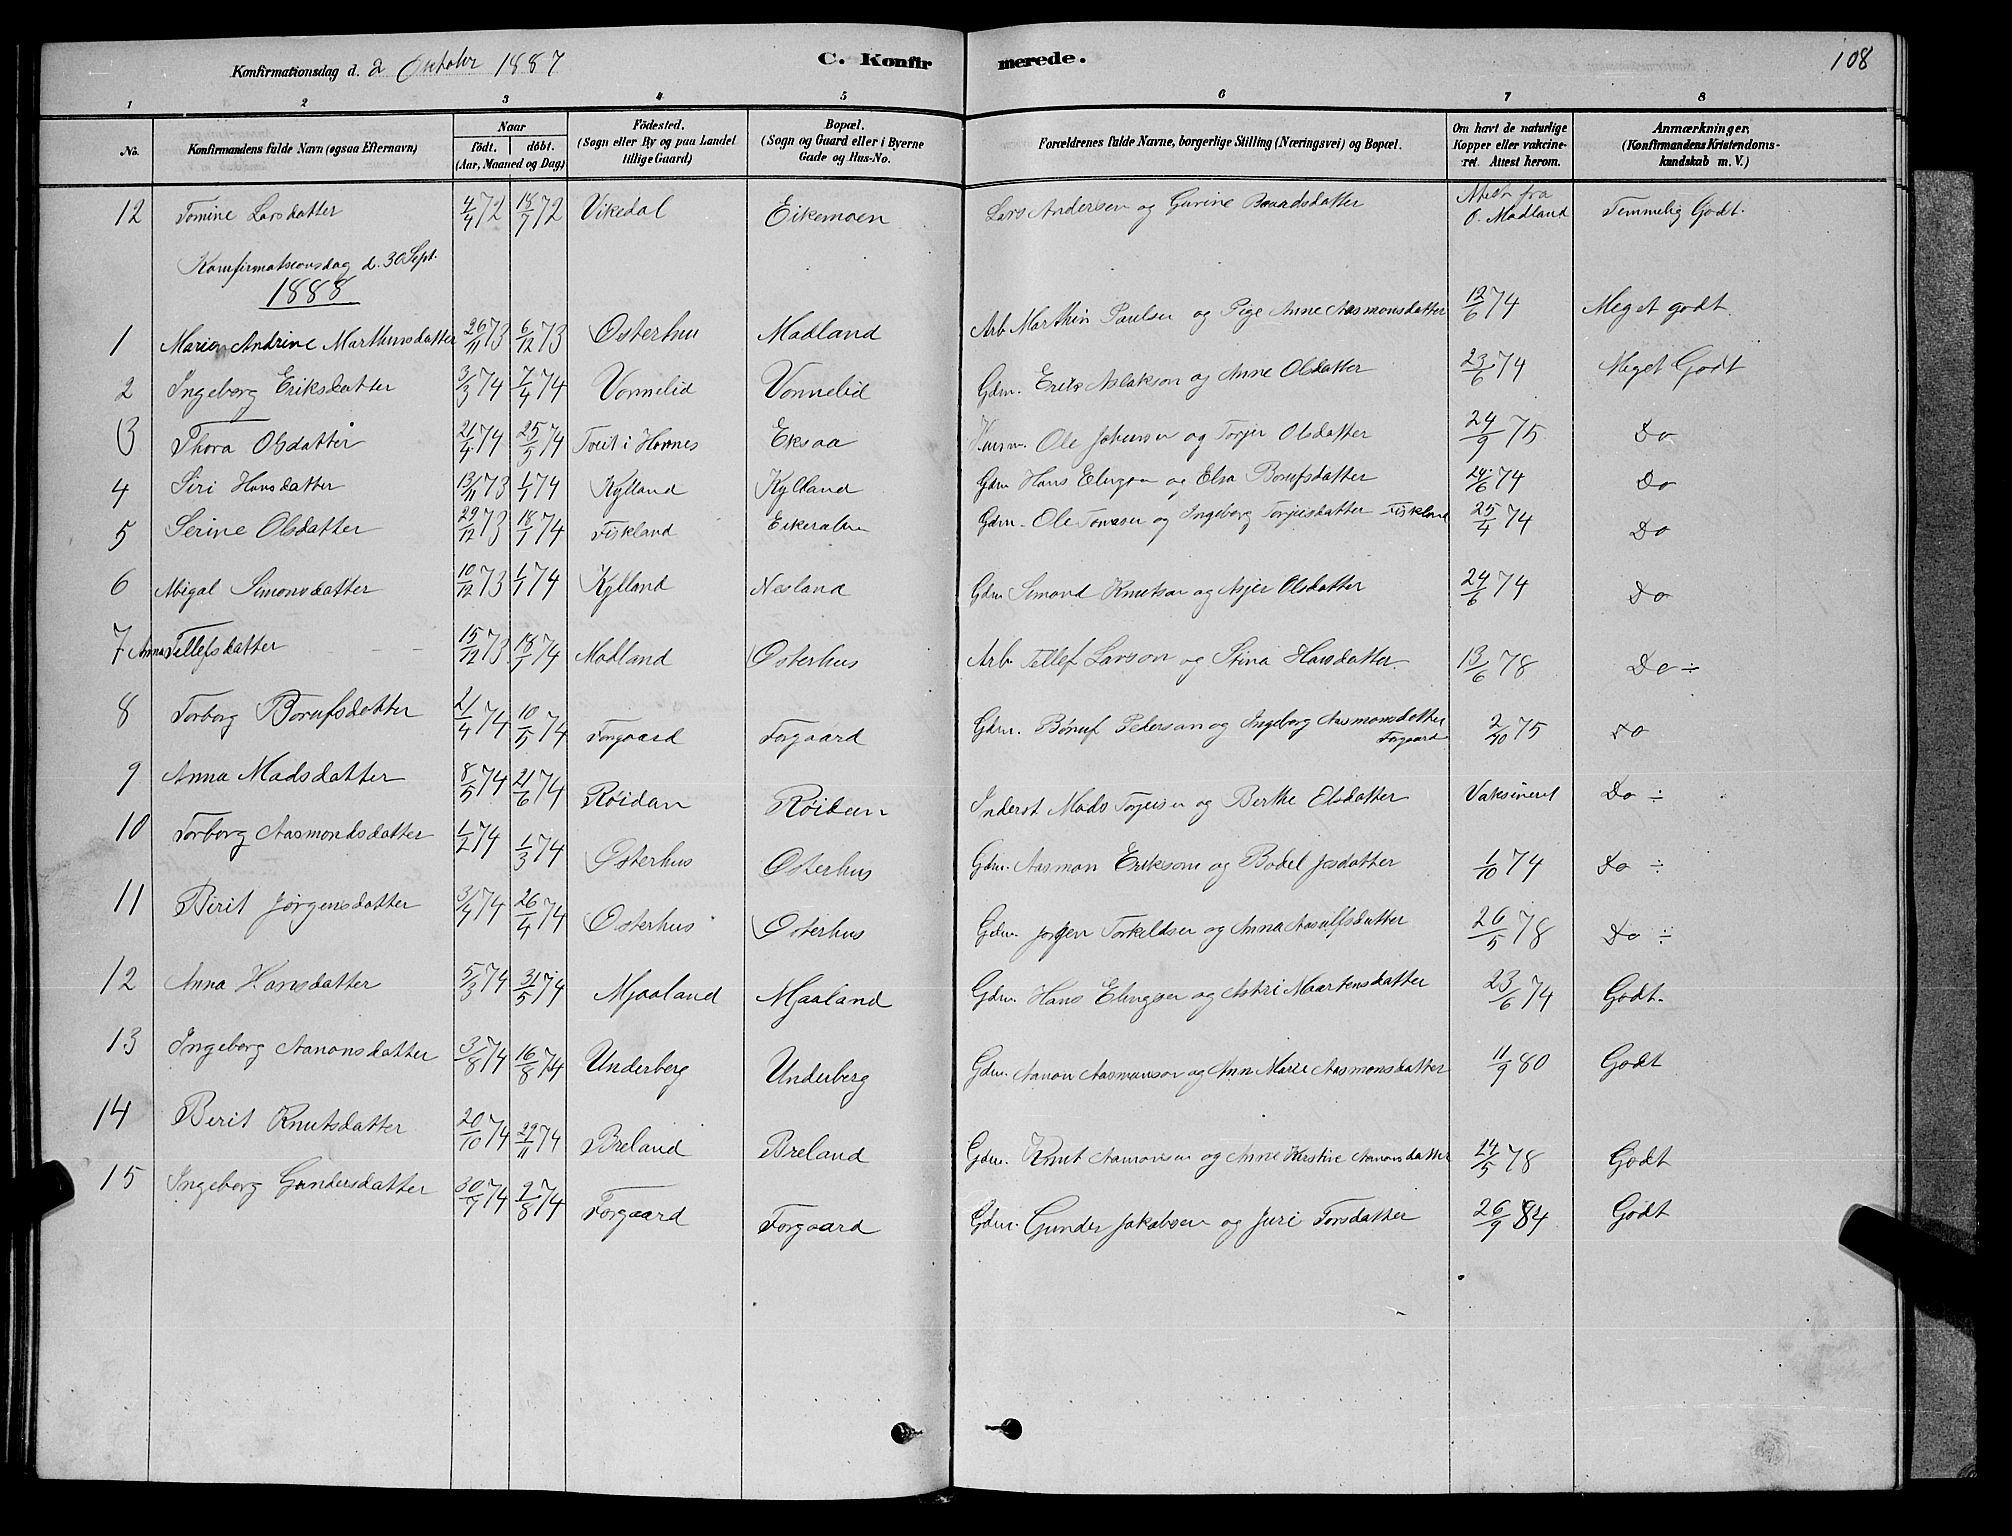 Konfirmationsdag d. 2 Oktober 1887
C. Konfir merede.
108
1 2 3 4 5 6 7 8
No.
Konfirmandens fulde Navn (ogsaa Efternavn)
Naar
födt. döbt.
(Aar, Maaned og Dag)
Födested.
(Sogn eller By og paa Landet
tillige Gaard)
Bopæl.
(Sogn og Gaard eller i Byerne
Gade og Hus-No.
Forældrenes fulde Navne, borgerlige Stilling (Næringsvei) og Bopæl.
Om havt de naturlige
Kopper eller vakcine-
ret. Attest herom.
Anmærkninger.
(Konfirmandens Kristendoms-
kundskab m. V.)
12 Tomine Larsdatter 4/4 72 18/7 72 Vikedal Eikemoen Lars Andersen og Gurine Baardsdatter Attest fra O. Madland Temmelig Godt.
Konfirmationsdag d. 30 Sept.
1888
1 Maria Andrine Marthinsdatter 26/11 73 6/12 73 Osterhus Madland Arb. Marthin Paulsen og Pige Anne Aasmonsdatter 12/6 74 Meget godt.
2 Ingeborg Eriksdatter 3/3 74 7/4 74 Vonnelid Vonnelid Gdm. Erik Aslakson og Anne Olsdatter 23/6 74 Meget Godt
3 Thora Olsdatter 21/4 74 25/5 74 Tveit i Hornes Eksaa Husm. Ole Johnsen og Torjer Olsdatter 24/9 75 Do
4 Siri Hansdatter 13/11 73 1/1 74 Kylland Kylland Gdm Hans Elingsen og Elsa Borufsdatter 24/6 74 Do
5 Serine Olsdatter 29/12 73 18/1 74 Fiskland Gdm. Ole Tomesen og Ingeborg Torjusdatter Fiskland 25/4 74 Do
6 Abigal Simonsdatter 10/12 73 1/1 74 Kylland Nesland Gdm Simond Knutsen og Asjer Olsdatter 24/6 74 Do
7 Anna Tellefsdatter 15/12 73 18/1 74 Madland Osterhus Arb. Tellef Larson og Stina Hansdatter. 13/6 78 Do ÷
8 Torborg Borufsdatter 21/4 74 10/5 74 Forgaard Forgaard Gdm. Bóruf Pederson og Ingeborg Aasmonsdatter Forgaard 2/10 75 Do
9 Anna Madsdatter 8/5 74 21/6 74 Røidan Røidan Inderst Mads Torjusen og Berthe Elsdatter Vaksineret Do ÷
10 Torborg Aasmondsdatter 1/2 74 1/3 74 Osterhus Osterhus Gdm. Aasmon Erikson og Bodel Josdatter 1/10 74 Do ÷
11 Birit Jørgensdatter 3/4 74 26/4 74 Osterhus Osterhus Gdm. Jørgen Torkildsen og Anna Aasulfsdatter 26/5 78 Do ÷
12 Anna Hansdatter 5/3 74 31/5 74 Mjaaland Mjaaland Gdm. Hans Elingsen og Astri Maartensdatter 23/6 74 Godt.
13 Ingeborg Aanonsdatter 3/8 74 16/8 74 Underberg Underberg Gdm. Aanon Aasmunson og Ann Marie Aasmonsdatter 11/9 80 Godt
14 Berit Knutsdatter 20/10 74 29/11 74 Breland Breland Gdm. Knut Aanonsen og Anne Kirstine Aanonsdatter 24/5 78 Godt
15 Ingeborg Gundersdatter 30/7 74 2/8 74 Forgaard Forgaard Gdm. Gunder Jakobsen og Juri Torsdatter 26/9 84 Godt